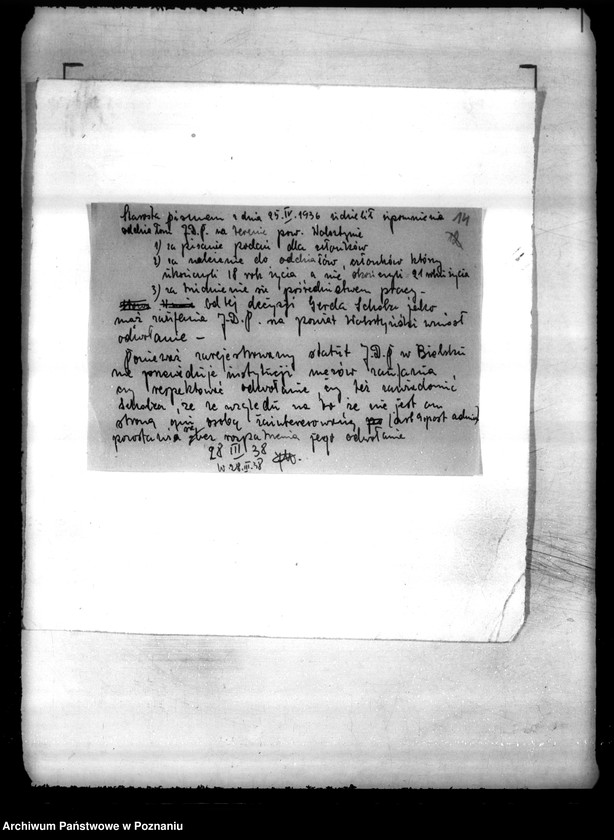 Starosta pismem z dnia 25.IV.1936 udzielił upomnienia 14
oddziałom J.D.P. na terenie pow. Wolsztynie
1) za pisanie podań dla członków
2) za należenie do oddziałów, członków którzy
ukończyli 18 rok życia a nie ukończyli 21 roku życia
3) za trudnienie się pośrednictwem pracy.
Od tej decyzji Gerda Scholz jako
mąż zaufania J.D.P. na powiat Wolsztyński wniósł
odwołanie –
Ponieważ zarejestrowany statut J.D.P w Bielsku
nie przewiduje instytucji mężów zaufania,
czy respektować odwołanie czy też zawiadomić
Scholza, że ze względu na to że nie jest on
stroną, ani osobą zainteresowaną (art 9 post adm)
pozostawia się bez rozpatrzenia jego odwołanie
28 III 38
W 28.III.38
Archiwum Państwowe w Poznaniu